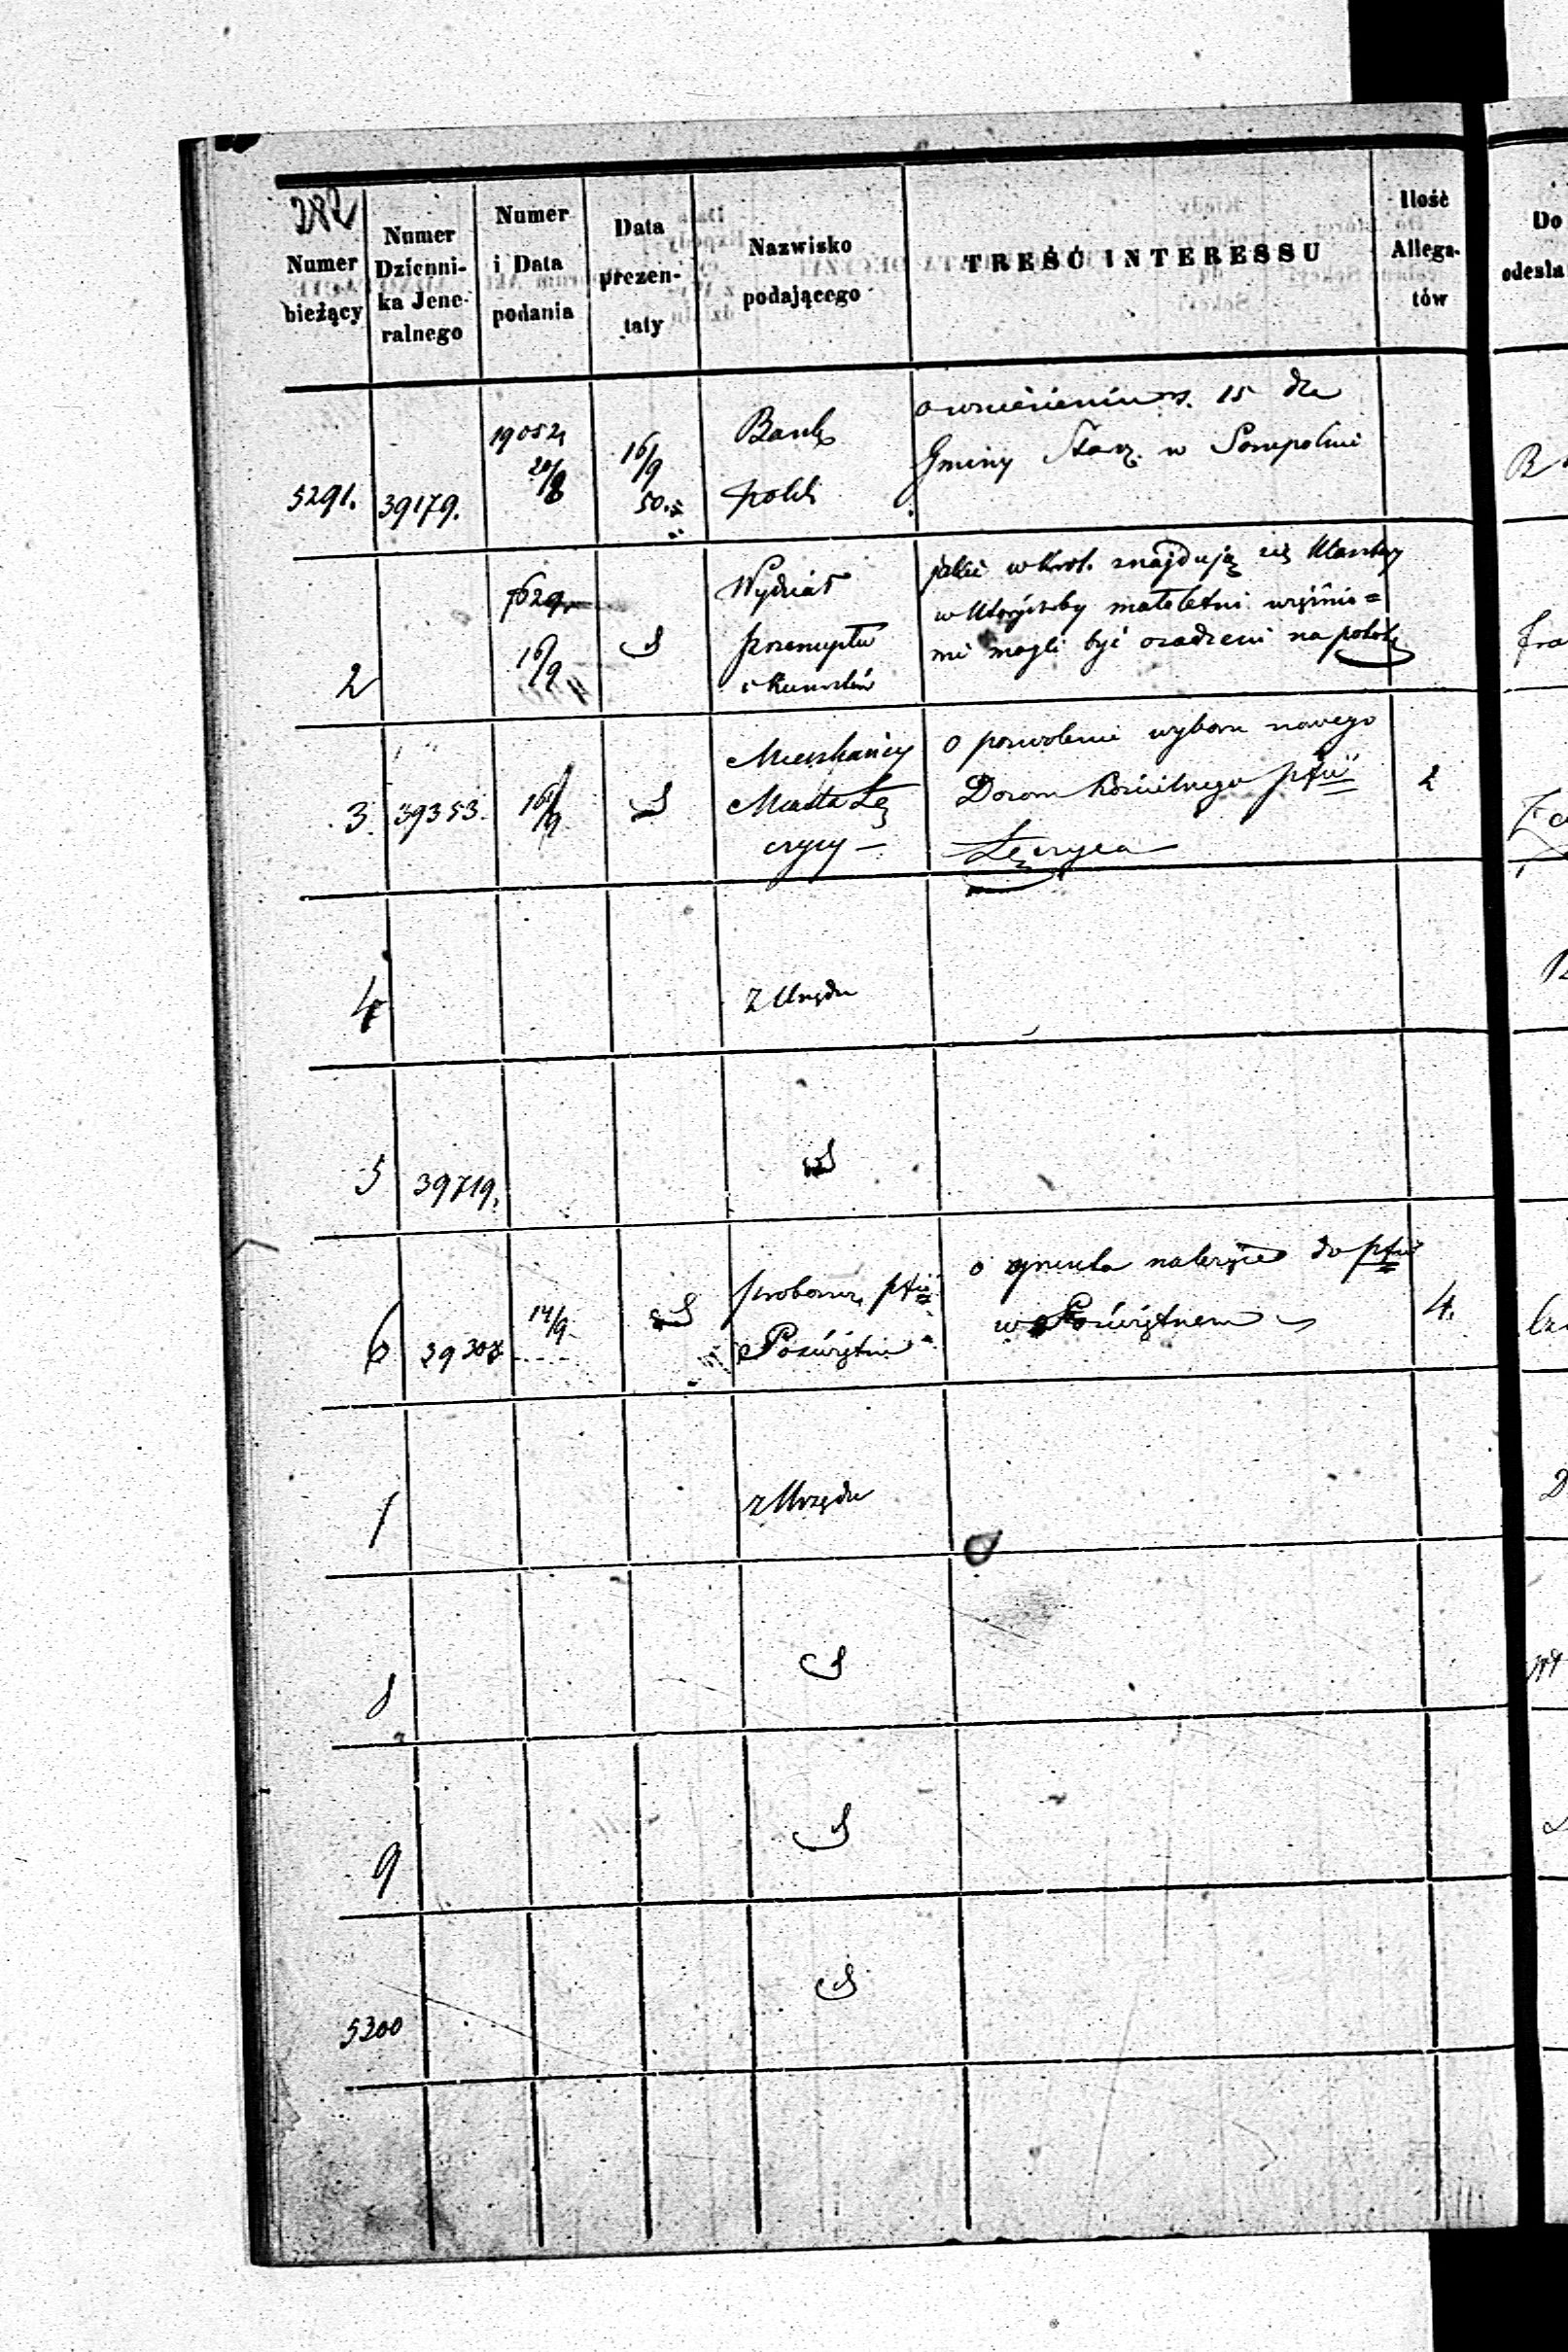 282
Numer bieżący
Numer Dzienni-ka Jene-ralnego
Numer i Data podania
Data prezen-taty
Nazwisko podającego
TREŚĆ INTERESSU
Ilość Allega-tów
Do
odesła
5291. 39179. 19052 20/8 16/9 50. Bank
polsk
o wniesieniu rs. 15 dla
Gminy Star. w Sompolnie
2 7629 16/9 Wydział
przemysłu
i Kunsztów
jakie w Król. znajdują się klasztory
w którychby małoletni więźnio=
wie mogli być osadzeni na
3. 39353. 16/9 Mieszkańcy
Miasta Łę
czycy —
o pozwolenie wyboru nowego
Dozoru Kościelnego pfii
Łęczyca
2
4 z Urzędu
5 39719.
6 39307 14/9 proboszcz pfii
Poświętne
o należące do pfii
w Poświętnem
4.
7 z Urzędu
8
9
5300